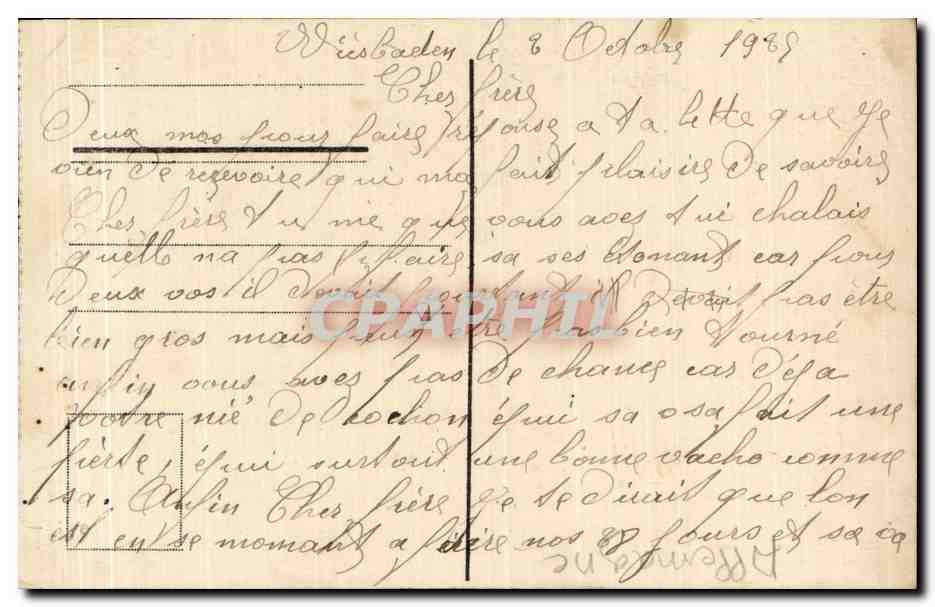 Wiesbaden le 8 Octobre 1925
Cher frère
Deux mos pour faire réponse a ta lettre que Je
vien de recevoire qui ma fait plaisire De savoire
Cher frère tu me que vous aves tui chalais
quelle na pas faire sa ses étonant car pour
Deux vos il devait pourtant il Devait pas être
bien gros mais peut être bien tourné
enfin vous aves pas De chance car Déja
votre nié De cochon équi sa osa fait une
pèrte, équi surtout une bonne vache comme
sa. Anfin Cher frère Je te dirait que lon
est en se momant a faire nos 28 jours et sa va
Allemagne
CPAPHIL